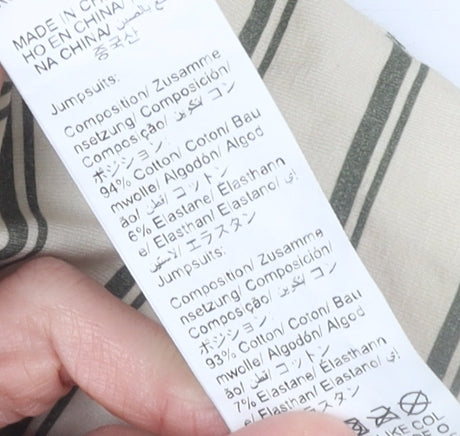 MADE IN CH
HO EN CHINA/
NA CHINA/ صنع بالصين/
중국산
Jumpsuits:
Composition/ Zusamme
nsetzung/ Composición/
Composição/ تكوين/ コン
ポジション:
94% Cotton/ Coton/ Bau
mwolle/ Algodón/ Algod
ão/ قطن/ コットン
6% Elastane/ Elasthann
e/ Elasthan/ Elastano/ إي
لاستين/ エラスタン
Jumpsuits:
Composition/ Zusamme
nsetzung/ Composición/
Composição/ تكوين/ コン
ポジション:
93% Cotton/ Coton/ Bau
mwolle/ Algodón/ Algod
ão/ قطن/ コットン
7% Elastane/ Elasthann
e/ Elasthan/ Elastano/ إي
エラスタン
LIKE COL